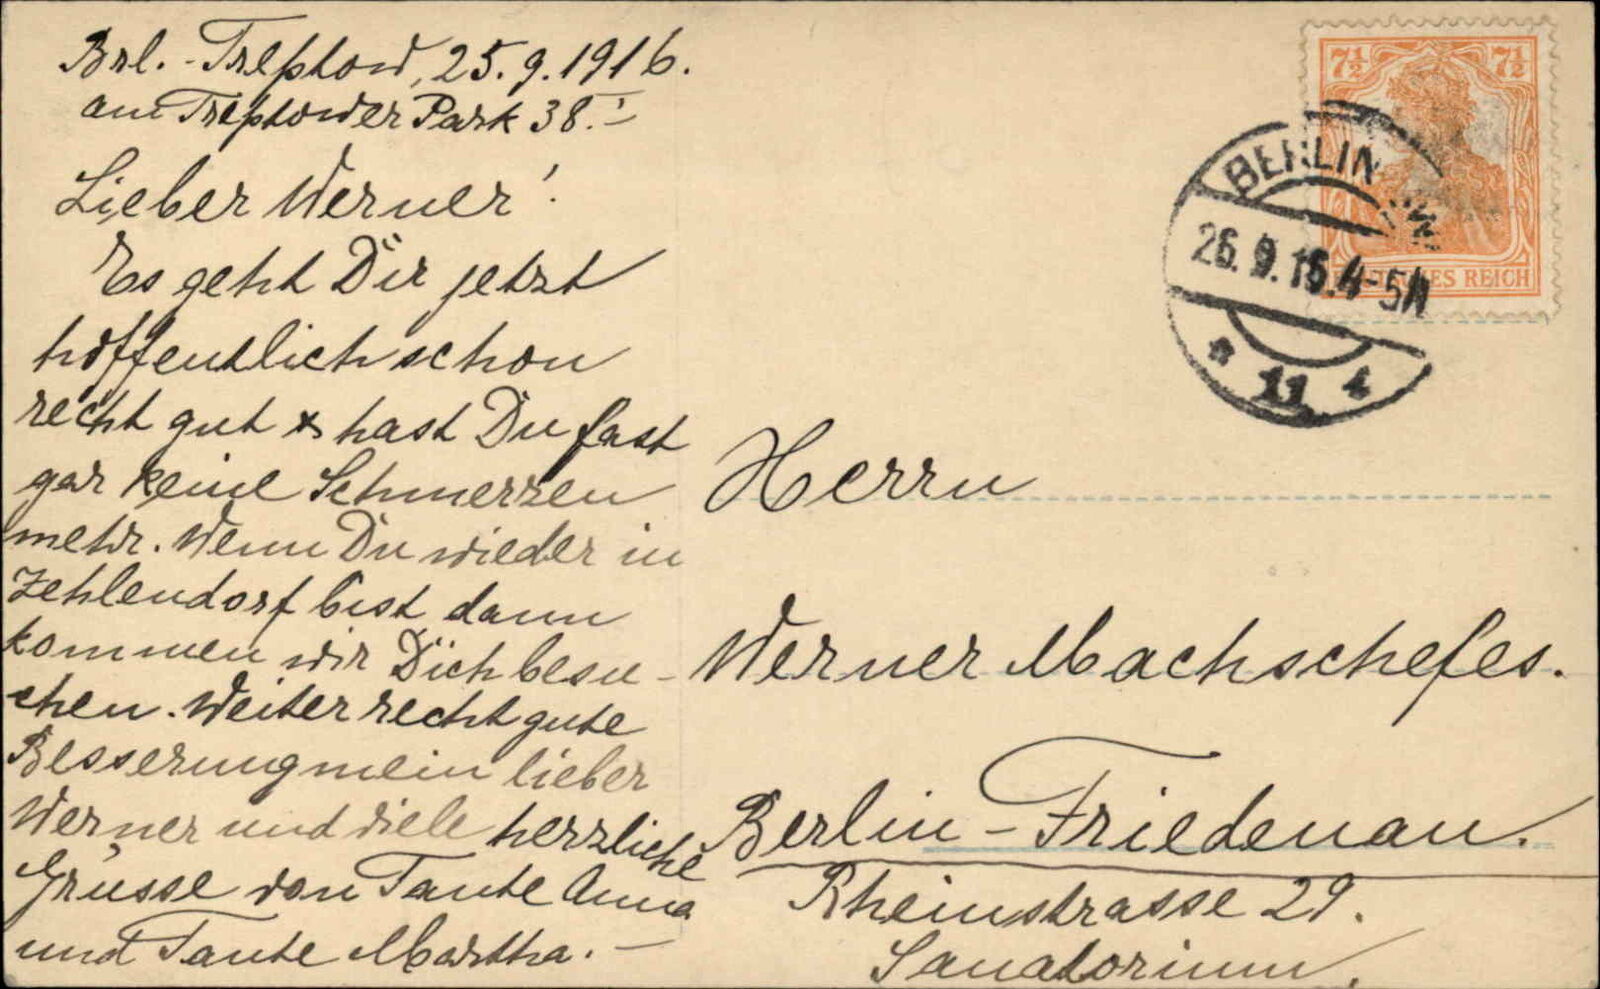 Brl.-Treptow, 25.9.1916.
am Treptower Park 38.I
Lieber Werner!
Es geht Dir jetzt
hoffentlich schon
recht gut & hast Du fast
gar keine Schmerzen
mehr. Wenn Du wieder in
Zehlendorf bist dann
kommen wir Dich besu-
chen. Weiter recht gute
Besserung mein lieber
Werner und viele herzliche
Grüsse von Tante Anna
und Tante Martha.—
7½ 7½
DEUTSCHES REICH
BERLIN
26.9.16.4-5N
* 11 *
Herrn
Werner Machschefes.
Berlin-Friedenau.
Rheinstrasse 29.
Sanatorium.